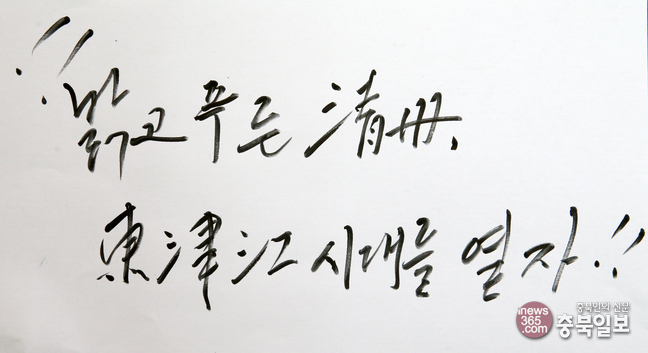 "밝고 푸른 清州,
東津江 시대를 열자.!!
inews
365.com
충북인의 신문
충북일보